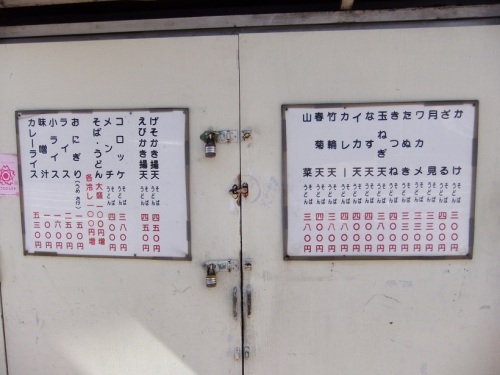 かけ そば うどん 三〇〇円
ざる そば うどん 四〇〇円
月見 そば うどん
ワカメ そば うどん
たぬき そば うどん
きつね そば うどん 四〇〇円
玉ねぎ天 そば うどん 三八〇円
なす天 そば うどん 三八〇円
イカ天 そば うどん 四〇〇円
カレー そば うどん 四〇〇円
竹輪天 そば うどん 三八〇円
春菊天 そば うどん 三八〇円
山菜 そば うどん 三八〇円
げそかき揚天 そば うどん 四五〇円
えびかき揚天 そば うどん 四五〇円
コロッケ そば うどん 三八〇円
メンチ そば うどん 四〇〇円
そば・うどん 大盛一〇〇円増
各冷し一〇〇円増
おにぎり 一五〇円
ライス 二五〇円
小ライス
味噌汁 五〇円
カレーライス 五三〇円